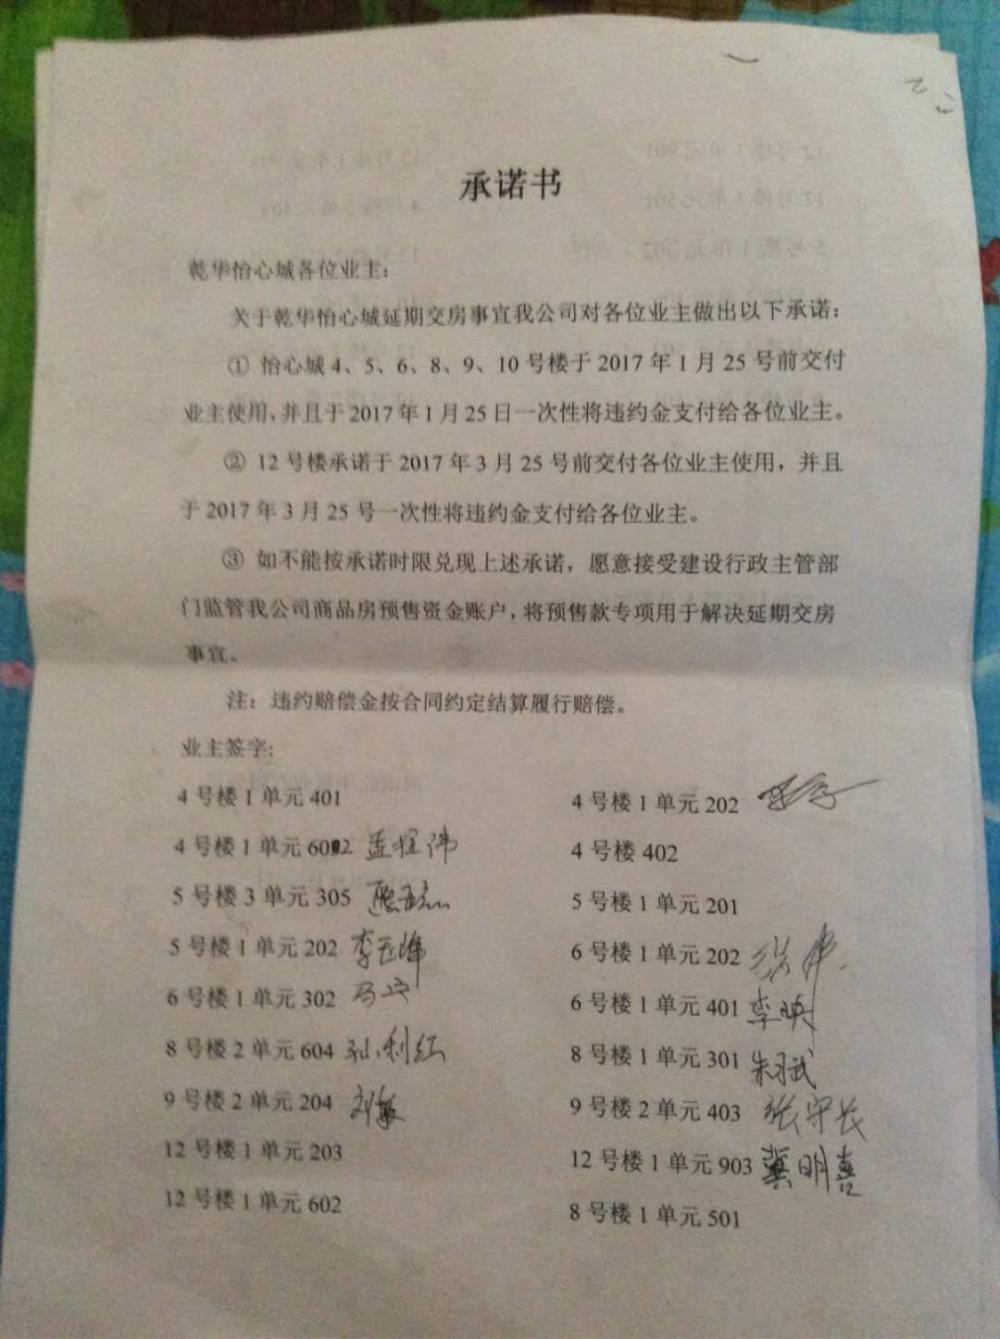 承诺书
乾华怡心城各位业主：
关于乾华怡心城延期交房事宜我公司对各位业主做出以下承诺：
① 怡心城 4、5、6、8、9、10 号楼于 2017 年 1 月 25 号前交付
业主使用，并且于 2017 年 1 月 25 日一次性将违约金支付给各位业主。
② 12 号楼承诺于 2017 年 3 月 25 号前交付各位业主使用，并且
于 2017 年 3 月 25 号一次性将违约金支付给各位业主。
③ 如不能按承诺时限兑现上述承诺，愿意接受建设行政主管部
门监管我公司商品房预售资金账户，将预售款专项用于解决延期交房
事宜。
注：违约赔偿金按合同约定结算履行赔偿。
业主签字：
4 号楼 1 单元 401
4 号楼 1 单元 202
4 号楼 1 单元
4 号楼 402
5 号楼 3 单元 305
5 号楼 1 单元 201
5 号楼 1 单元 202 李玉峰
6 号楼 1 单元 202
6 号楼 1 单元 302
6 号楼 1 单元 401 李映
8 号楼 2 单元 604 孙利红
8 号楼 1 单元 301
9 号楼 2 单元 204 刘敏
9 号楼 2 单元 403 张守长
12 号楼 1 单元 203
12 号楼 1 单元 903 冀明喜
12 号楼 1 单元 602
8 号楼 1 单元 501